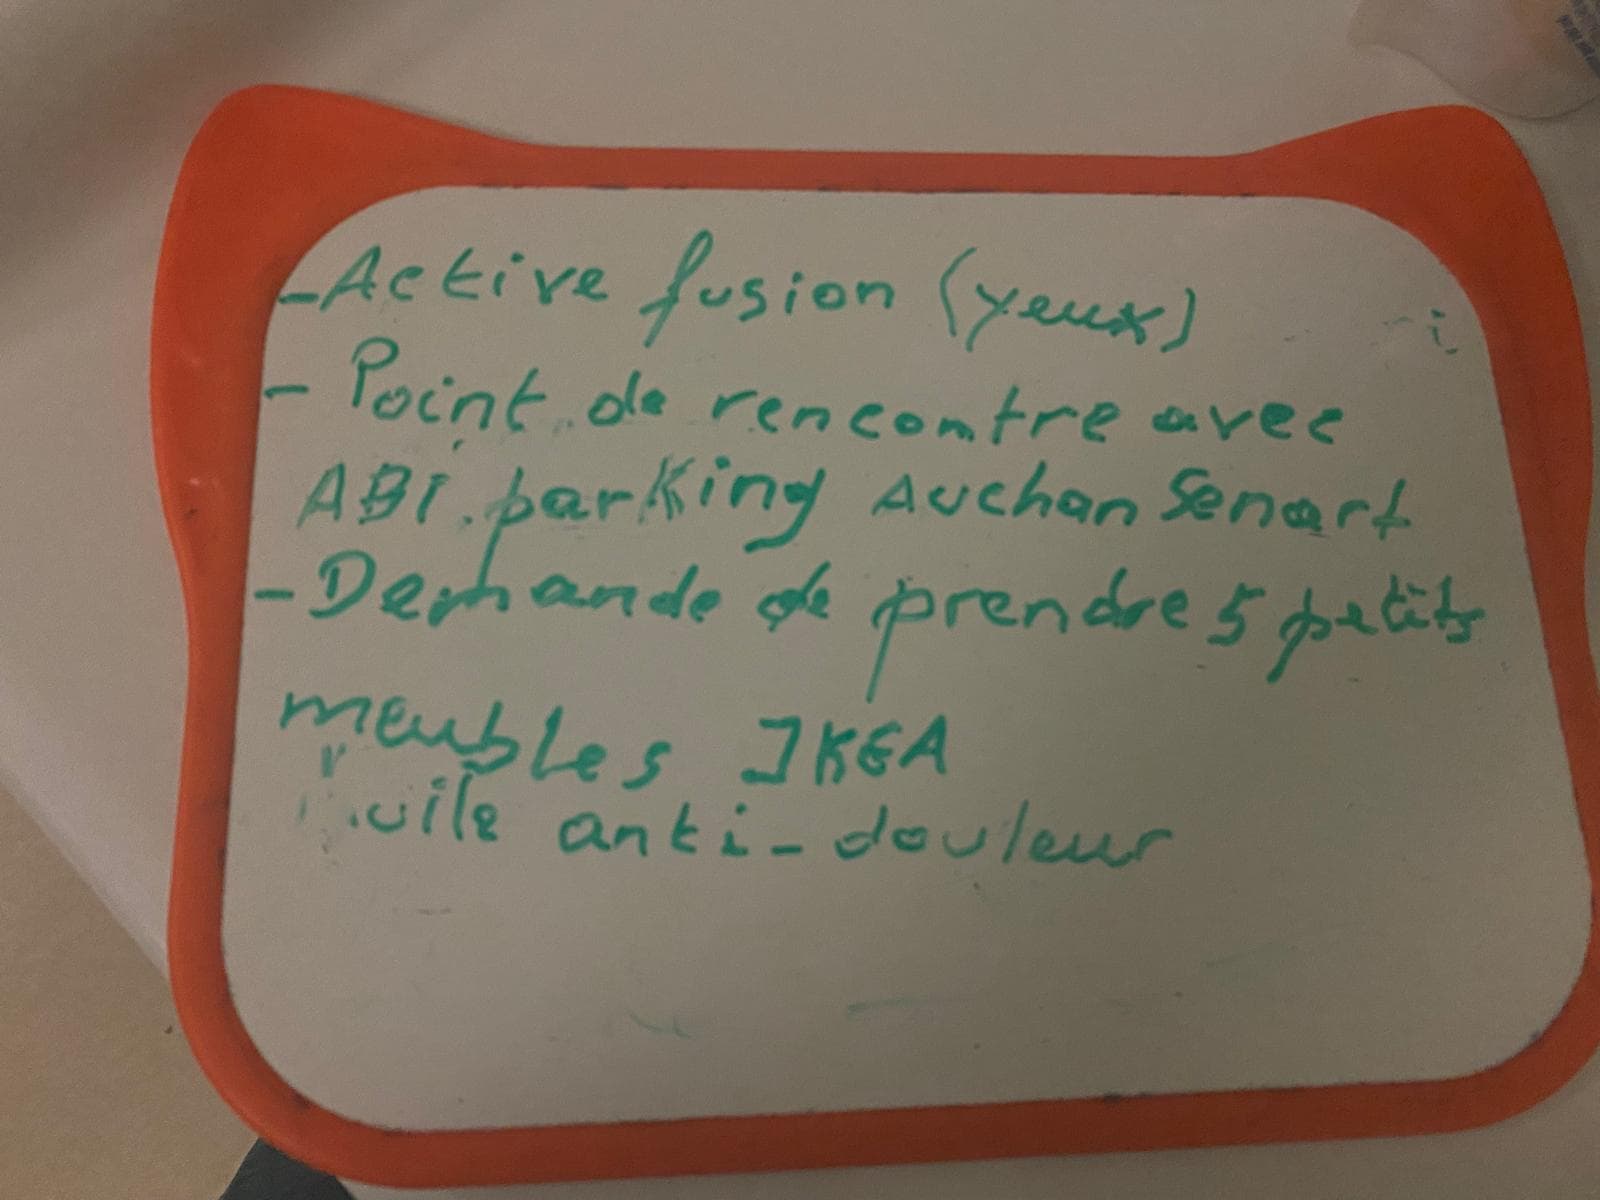 - Active fusion (yeux)
- Point de rencontre avec
ABI parking Auchan Senart
- Demande de prendre 5 petits
meubles IKEA
anti-douleur